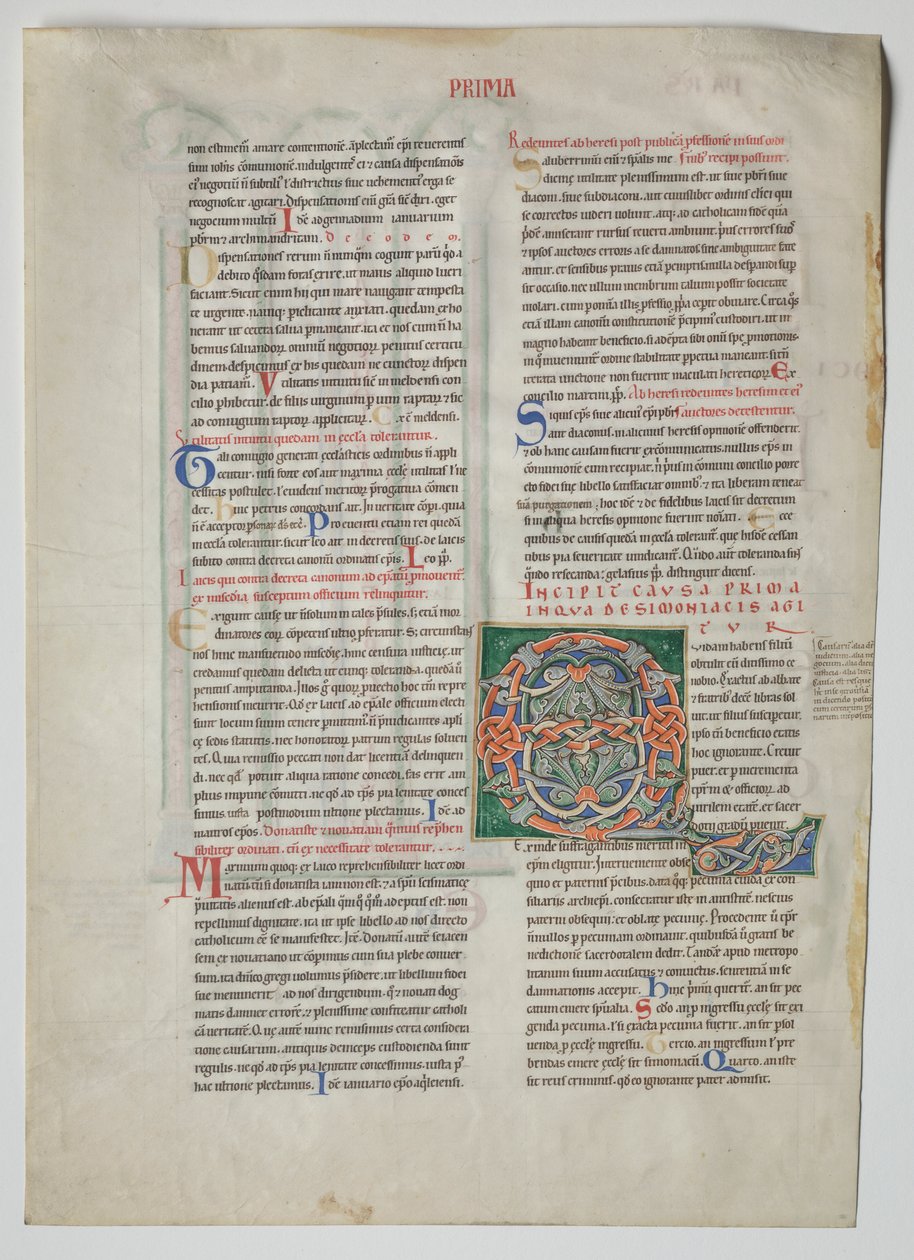 PRIMA
non estimem amare contentione. aplectam epi reverentis
simi iohis comunione. indulgente ei & causa dispensationis
ei negotiu n subtili l districtius sive vehementi erga se
recognoscat agitari. Dispensationis eni gra sic dicitur. eget
negocium multu Ide ad gennadium ianuarium
pbrm & archimandritam. De eodem.
Dispensationes rerum n nunqm cogunt paru qd a
debito qsdam foras exire. ut maius aliquid lucri
faciant. Sicut enim hij qui mare navigant tempesta
te urgente. navique periclitante anxiati. quedam exho
nerant ut cetera salva pmaneant. ita et nos cum n ha
bemus salvandorum omniu negotiorum penitus certitu
dinem. despicimus ex his quedam ne cunctorum dispen
dia patiamur. Utilitatis intuitu sic in meldensi con
cilio phibetur. de filiis virginum pvim raptarum & sic
ad coniugium raptorum applicatarum. Ex c meldensi.
Utilitatis intuitu quedam in eccla tolerantur.
Tali coniugio generati ecclasticis ordinibus n appli
centur. nisi forte eos aut maxima eccle utilitas l ne
cessitas postulet. l evidens meritorum progativa comen
det. huic petrus concordans ait. In veritate copi. quia
n e acceptor psonarum ds etc. Pro eventu etiam rei queda
in eccla tolerantur. sicut leo ait in decretis suis. de laicis
subito contra decreta canonu ordinatis epis. Leo pp.
Laicis qui contra decreta canonum ad epatum pmoventur.
ex misedia susceptum officium relinquitur.
Exigunt cause ut n solum in tales psules. s; etia in or
dinatores eorum copetens ultio pferatur. S; circumstant
nos hinc mansuetudo misedie. hinc censura iusticie. ut
credamus quedam delicta ut cumque toleranda. queda u
penitus amputanda. Illos g quorum pvecto hoc tm repre
hensionis incurrit. Qd ex laicis ad epale officium electi
sunt locum suum tenere pmittimus. n piudicantes apli
ce sedis statutis. nec honoratorum patrum regulas solven
tes. Quia remissio peccati non dat licentia delinquen
di. nec qd potuit aliqua ratione concedi. fas erit am
plius impune comitti. ne qd ad tps pia lenitate conces
simus. iusta postmodum ultione plectamus. Ide ad
mauros epos. Donatiste & novatiani qmvis rephen
sibiliter ordinati. tn ex necessitate tolerantur.
Maximum quoque ex laico reprehensibiliter licet ordi
natu. tn si donatista iam non est. & a spu scismatice
pvitatis alienus est. ab epali quo qm adeptus est. non
repellimus dignitate. ita ut ipse libello ad nos directo
catholicum ee se manifestet. Ite. Donatu aute seiacen
sem ex novatiano ut coperimus cum sua plebe conver
sum. ita dnico gregi volumus psidere. ut libellum fidei
sue meminerit ad nos dirigendum. q & novati dog
matis damnet errore. & plenissime confiteatur catholi
ca veritate. Que aute nunc remisimus certa considera
tione causarum. antiquis deinceps custodienda sunt
regulis. ne qd ad tps pia lenitate concessimus. iusta p
hac ultione plectamus. Ide ianuario epo aqleiensi.
Redeuntes ab heresi post publica pfessione in suis ordi
Saluberrimu eni & spalis me nibus recipi possunt.
dicine utilitate plenissimum est. ut sive pbri sive
diaconi. sive subdiaconi. aut cuiuslibet ordinis clerici qui
se correctos videri volunt. atque ad catholicam fide qua
pde amiserant rursus reverti ambiunt. pus errores suos
& ipsos auctores erroris a se damnatos sine ambiguitate fate
antur. et sensibus pravis etia pemptis. nulla desperandi sup
sit occasio. nec ullum membrum talium possit societate
violari. cum p omnia illis pfessio ppa ceperit obviare. Circa qs
etia illam canonu constitutione pcipimus custodiri. ut in
magno habeant beneficio. si adepta sibi omni spe pmotionis.
in q inveniuntur ordine stabilitate ppetua maneant. si tn
iterata tinctione non fuerint maculati hereticorum. Ex
concilio martini pp. Ab heresi redeuntes heresim & ei
Siquis eps sive alicui epi pbr auctores detestentur.
aut diaconus. in alicuius heresis opinione offenderit.
& ob hanc causam fuerit excomunicatus. nullus eps in
comunione eum recipiat. n pus in comuni concilio porre
cto fidei sue libello satisfaciat omnib. & ita liberam teneat
sua purgationem. hoc ide & de fidelibus laicis sit decretum
si in aliqua heresis opinione fuerint notati. Ecce
quibus de causis queda in eccla tolerantur. que hisde cessan
tibus pia severitate vindicantur. Qndo aut toleranda sint
qndo resecanda: gelasius pp. distinguit dicens.
INCIPIT CAUSA PRIMA
IN QUA DE SIMONIACIS AGI
TUR
Quidam habens filiu
obtulit eu ditissimo ce
nobio. Exactus ab abbate
& fratrib. dece libras sol
vit. ut filius susciperetur.
ipso tn beneficio etatis
hoc ignorante. Crevit
puer. et p incrementa
tprm & officiorum. ad
virilem etate. et sacer
dotij gradu pvenit.
Exinde suffragantibus meritis in
epm eligitur. Interveniente obse
quio et paternis pcibus. data qque pecunia cuida ex con
siliariis archiepi. consecratur iste in antistite. nescius
paterni obsequii: et oblate pecunie. Procedente u tpr
nnullos p pecuniam ordinavit. quibusda u gratis be
nedictione sacerdotalem dedit. Tande apud metropo
litanum suum accusatus & convictus. sententia in se
damnationis accepit. Hinc primu queritur. an sit pec
catum emere spualia. Scdo. an p ingressu eccle sit exi
genda pecunia. l si exacta pecunia fuerit. an sit psol
venda p eccle ingressu. Tercio. an ingressum l pre
bendas emere eccle sit simoniacu. Quarto. an iste
sit reus criminis. qd eo ignorante pater admisit.